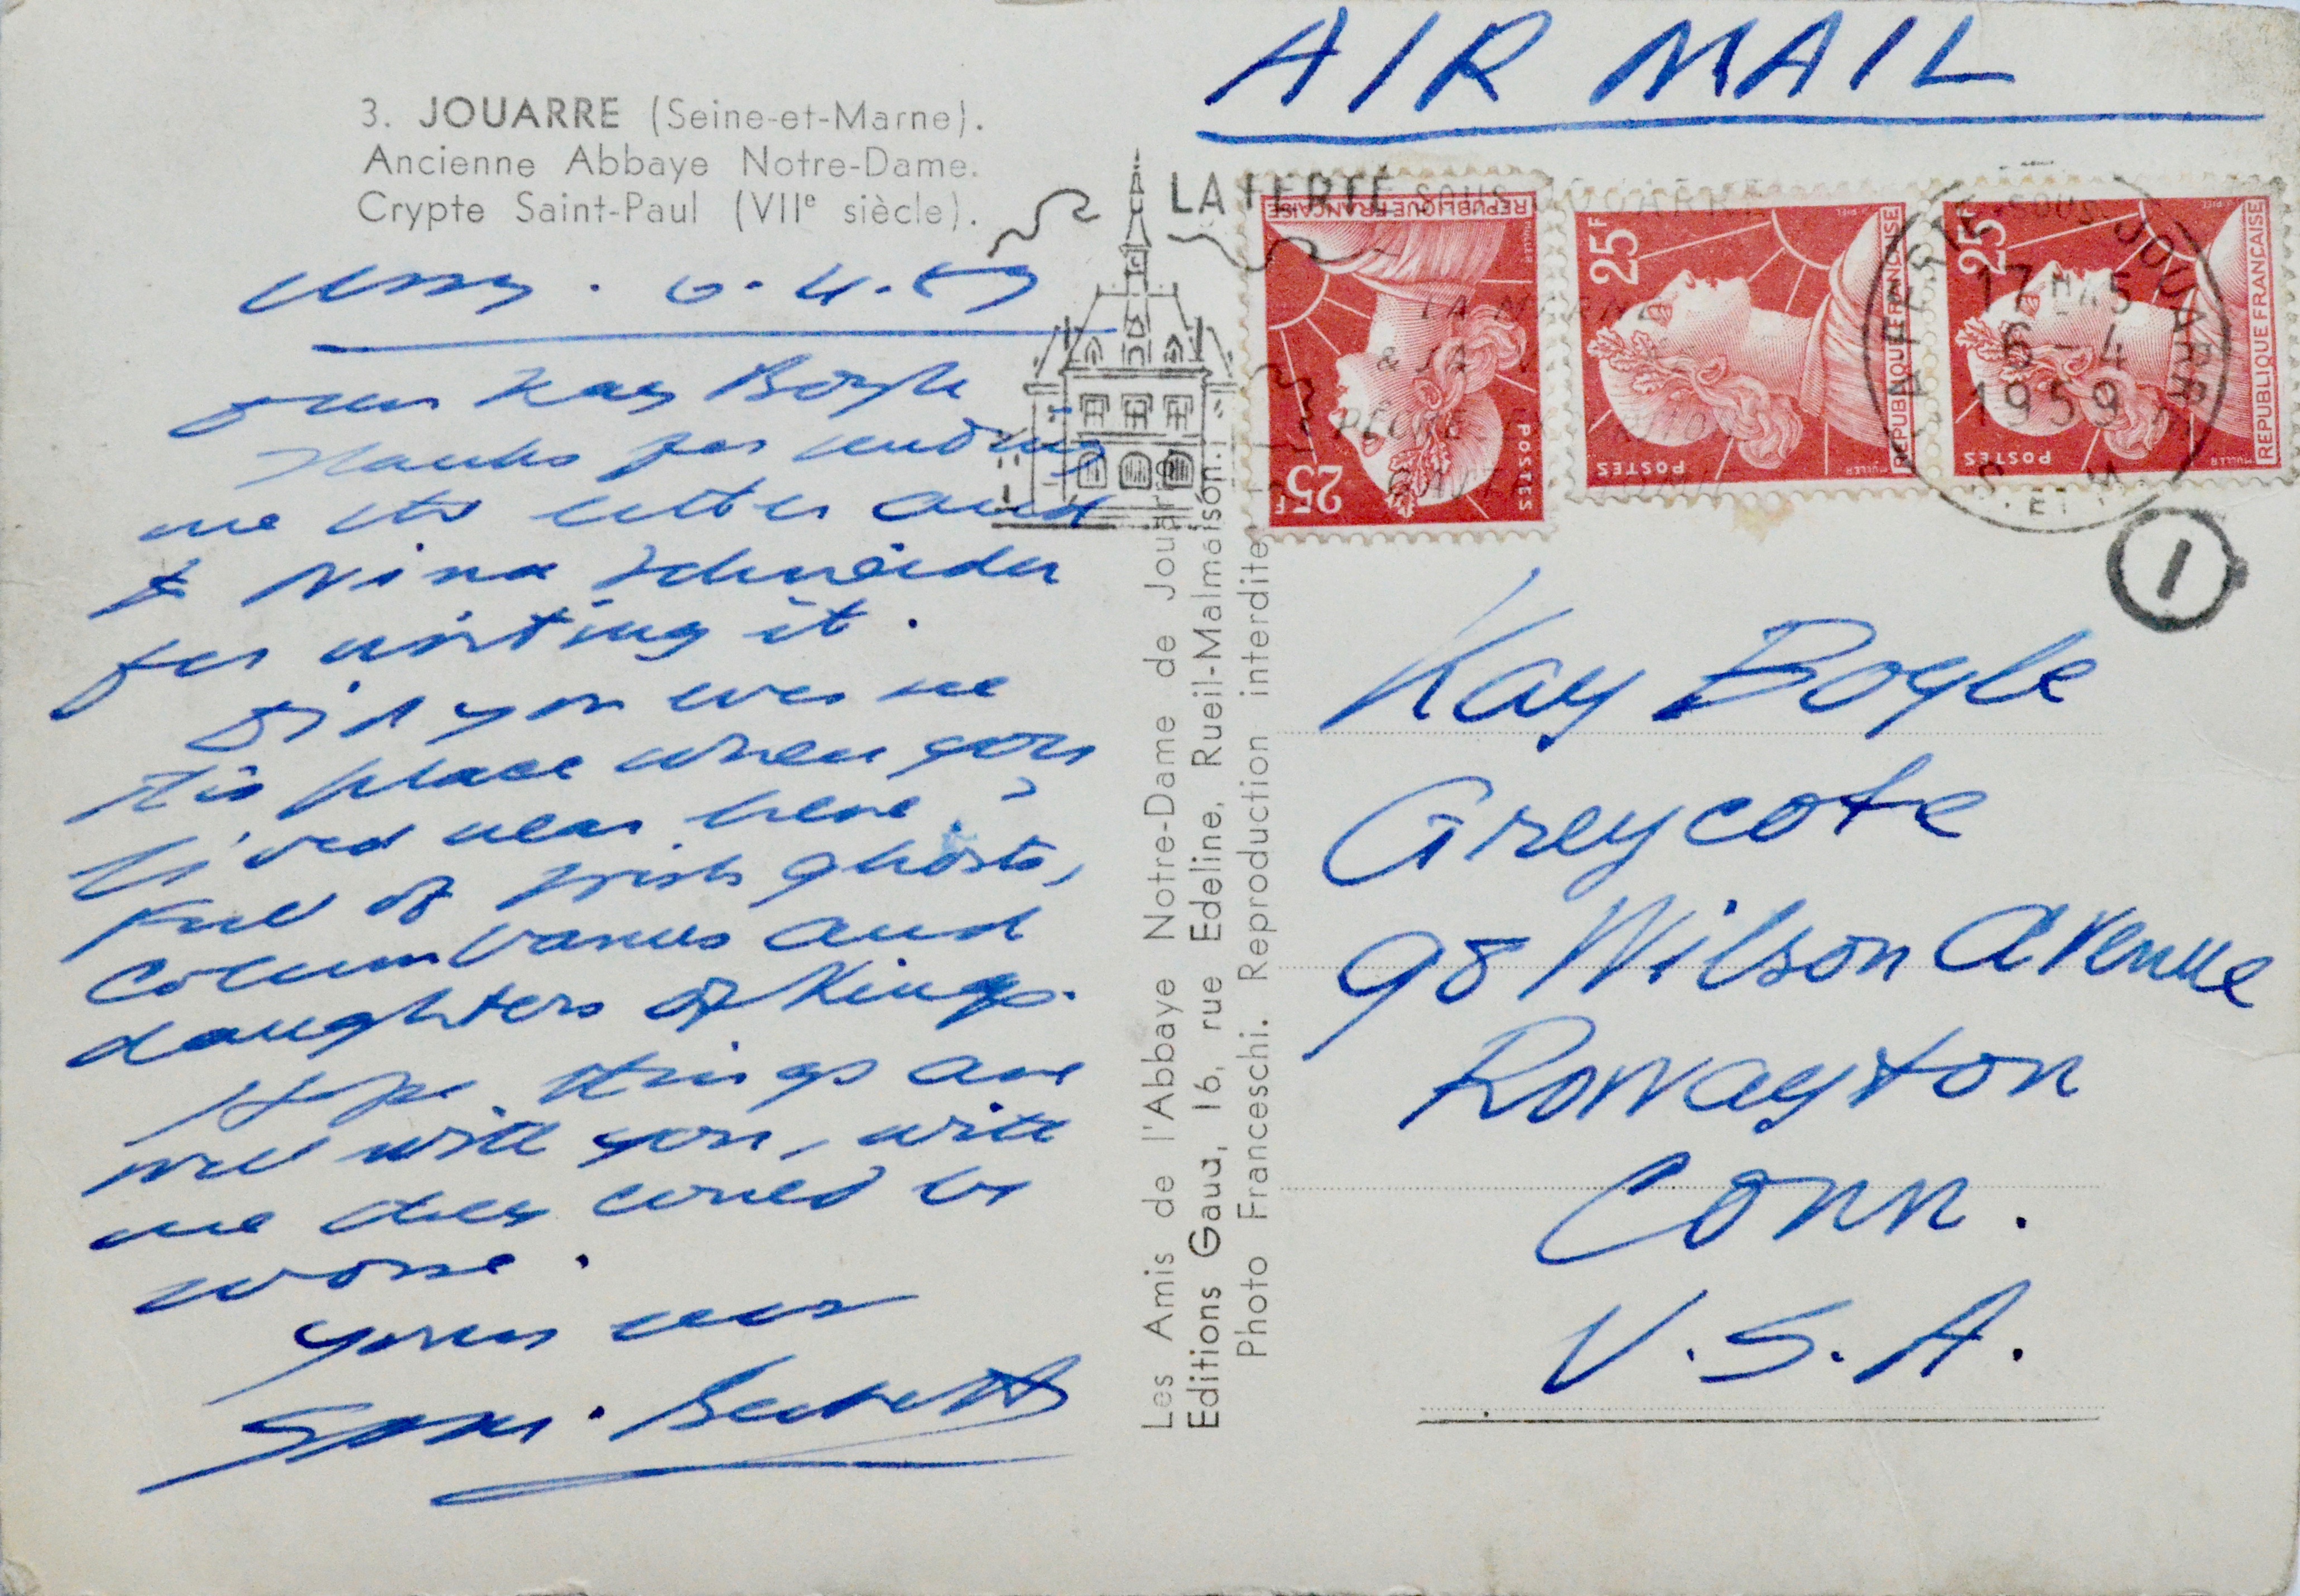 AIR MAIL
3. JOUARRE (Seine-et-Marne).
Ancienne Abbaye Notre-Dame.
Crypte Saint-Paul (VIIe siècle).
Ussy. 6.4.59
Dear Kay Boyle
Thanks for sending
me the letter and
to Nina Schneider
for writing it.
Did you ever see
this place when you
lived near here?
Full of Irish ghosts,
Columbanus and
daughters of Kings.
Hope things are
well with you, with
me they could be
worse.
Yours ever
Sam. Beckett
Les Amis de l'Abbaye Notre-Dame de Jouarre
Editions Gaud, 16, rue Edeline, Rueil-Malmaison.
Photo Franceschi. Reproduction interdite
LA FERTÉ SOUS JOUARRE
LA MARNE
& SA
PÊCHE
REPUBLIQUE FRANÇAISE
25F
POSTES
MULLER
25F
REPUBLIQUE FRANÇAISE
POSTES
MULLER
PIEL
25F
REPUBLIQUE FRANÇAISE
POSTES
MULLER
PIEL
LA FERTE-SOUS-JOUARRE
17H45
6-4
1959
S. ET M.
1
Kay Boyle
Greycote
98 Wilson Avenue
Rowayton
Conn.
U.S.A.